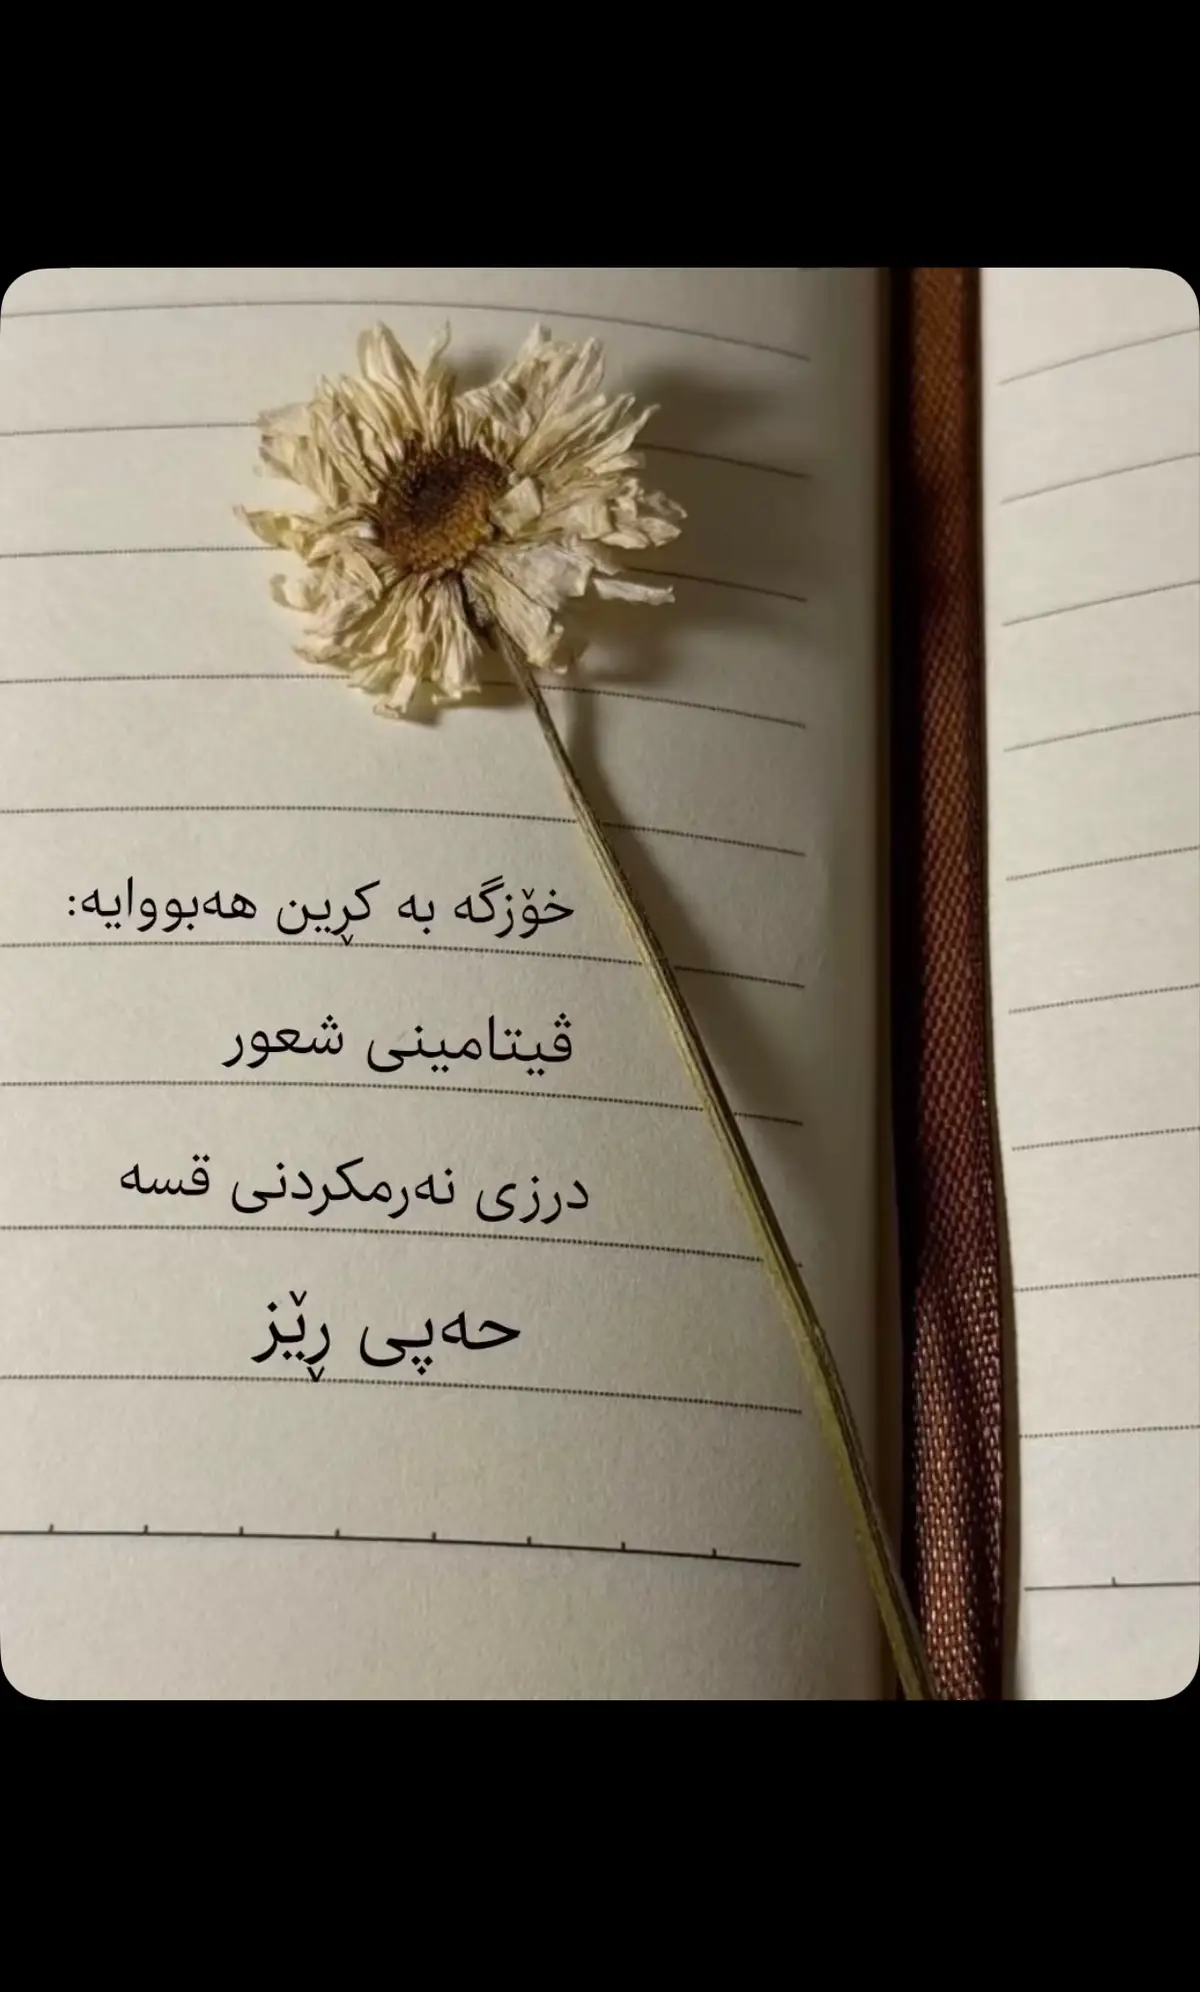 خۆزگە بە کڕین هەبووایە:
ڤیتامینی شعور
درزی نەرمکردنی قسە
حەپی ڕێز